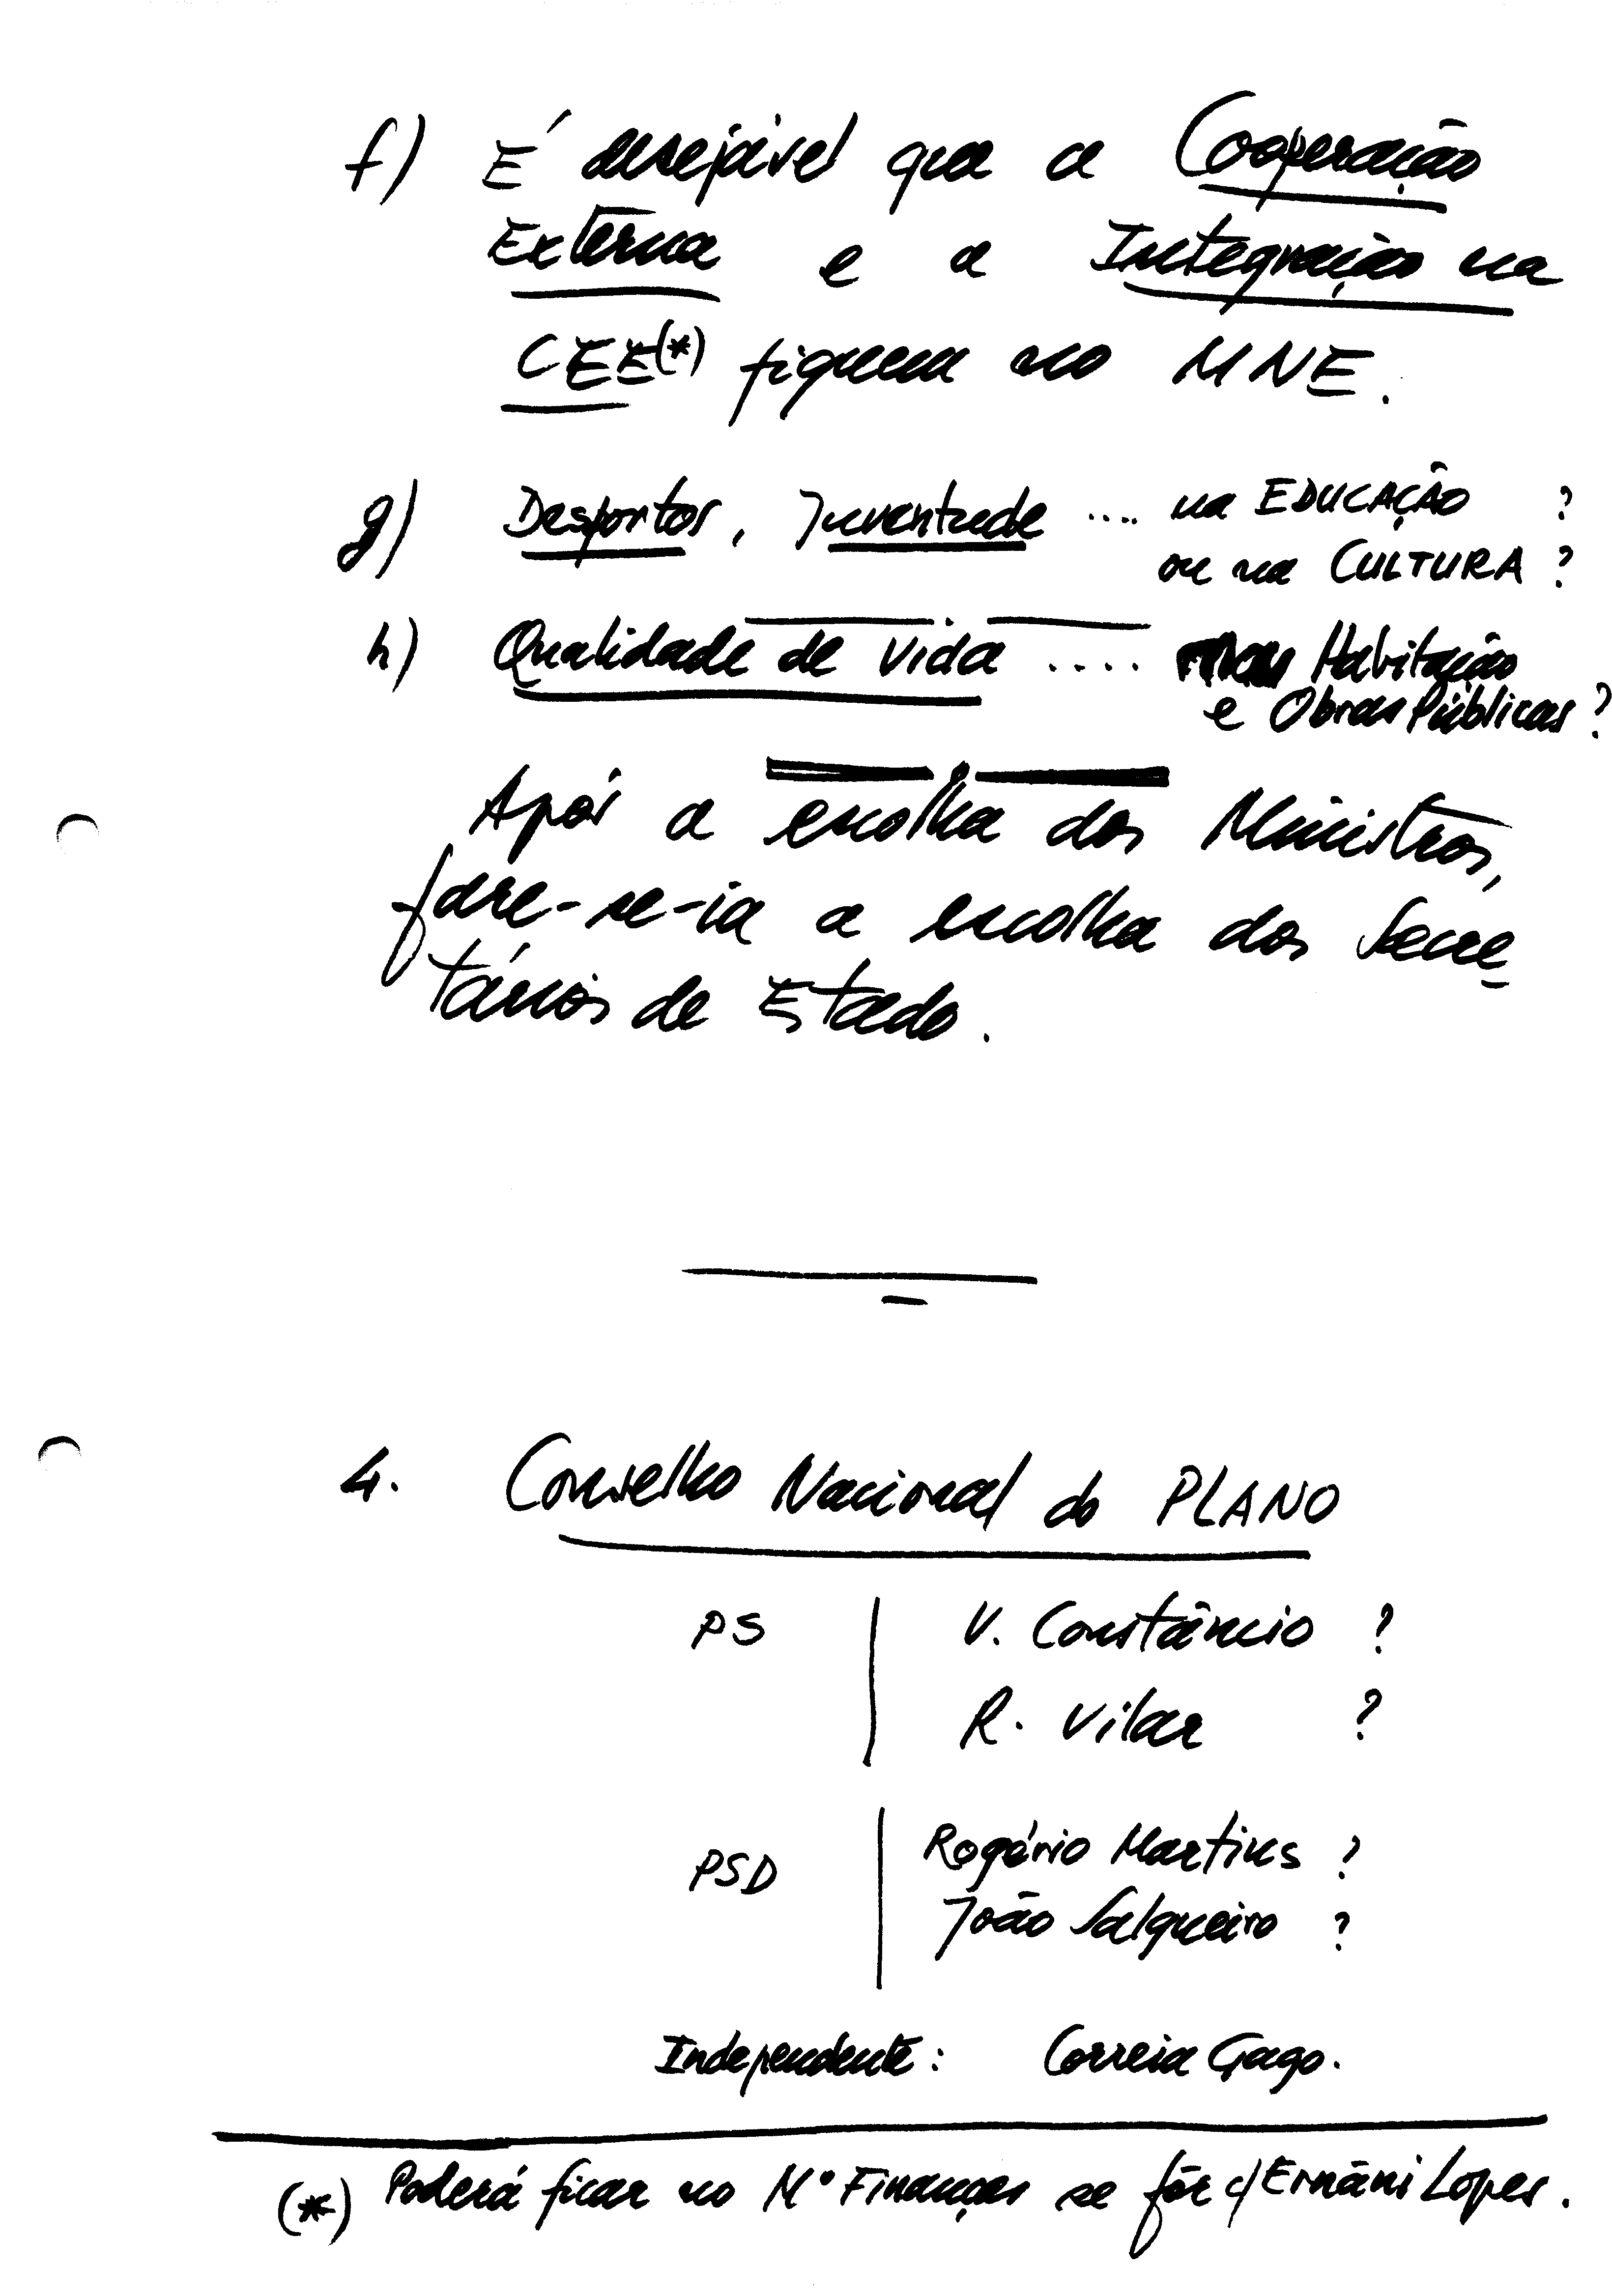 f) É desejável que a Cooperação
Externa e a Integração na
CEE(*) fiquem no MNE.
g) Desportos, Juventude .... na EDUCAÇÃO ?
ou na CULTURA ?
h) Qualidade de Vida .... Habitação
e Obras Públicas ?
Após a escolha dos Ministros,
far-se-ia a escolha dos Secre
tários de Estado.
4. Conselho Nacional do PLANO
PS V. Constâncio ?
R. Vilar ?
PSD Rogério Martins ?
João Salgueiro ?
Independente: Correia Gago.
(*) Poderá ficar no Mº Finanças se fôr c/ Ernâni Lopes.